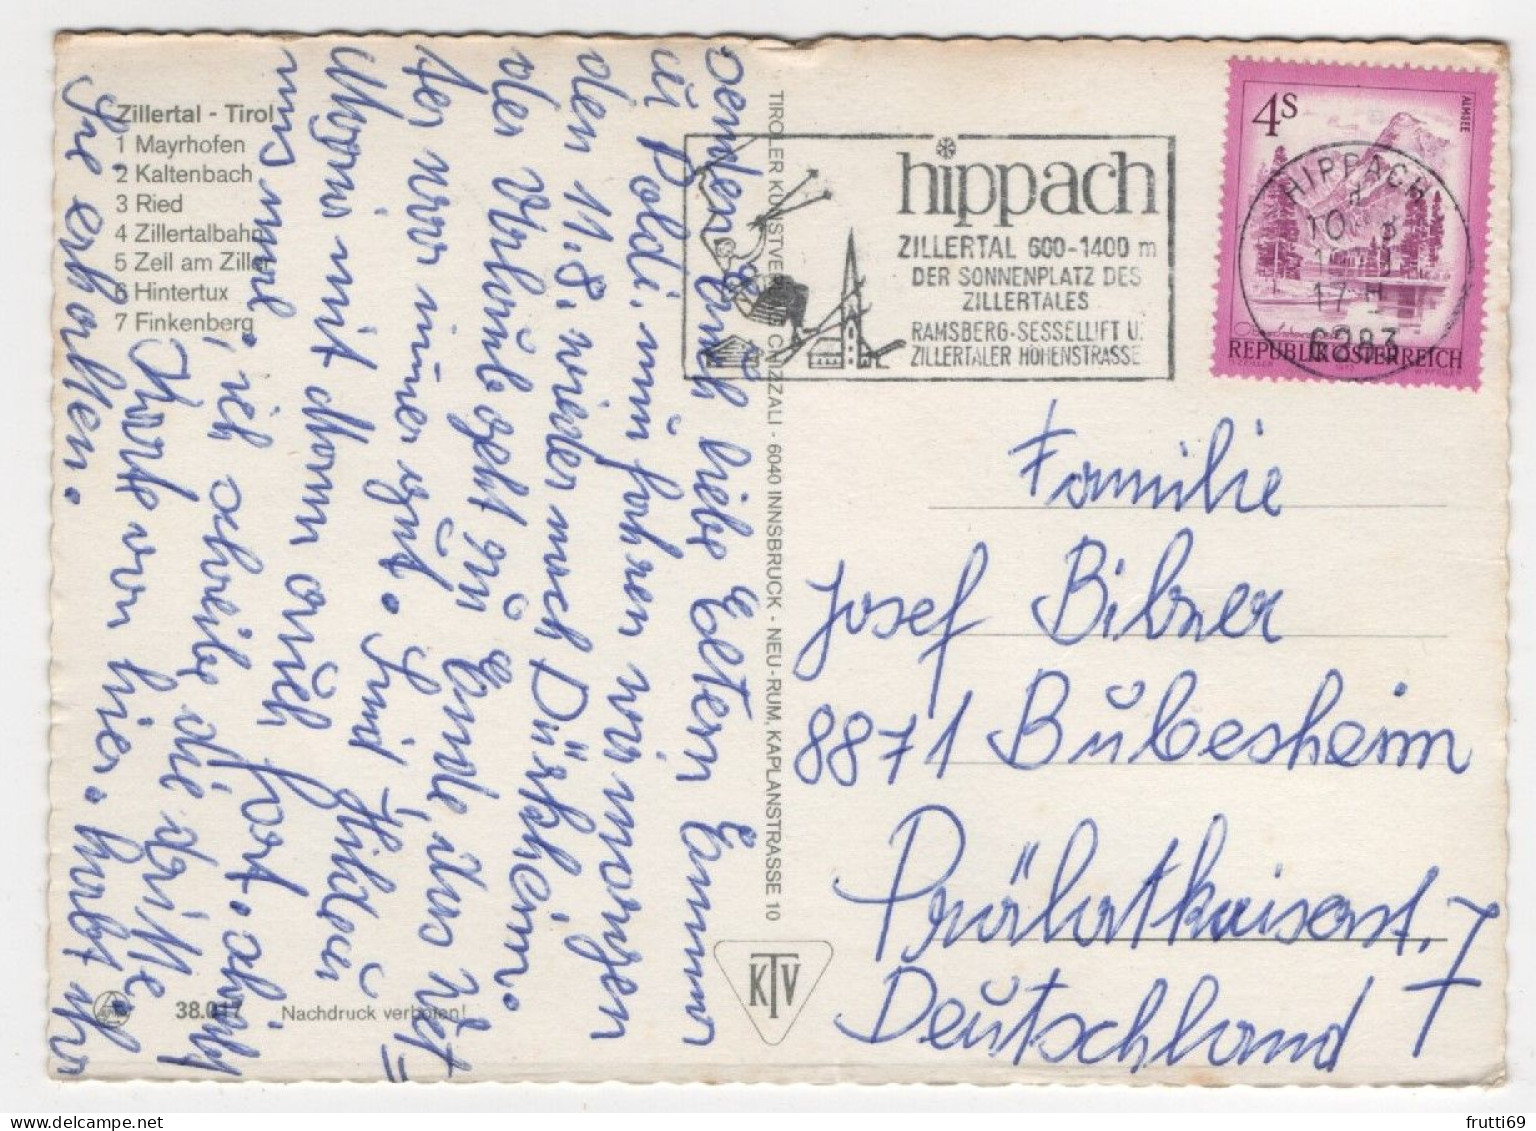 Zillertal - Tirol
1 Mayrhofen
2 Kaltenbach
3 Ried
4 Zillertalbahn
5 Zell am Ziller
6 Hintertux
7 Finkenberg
38.017 Nachdruck verboten!
liebe Eltern
ü Poldi. nun fahren wir morgen
den 11.8. wieder nach Dürkheim.
der Urlaub geht zu Ende, das Wet-
ter war immer gut.
Morgen mit Mann auch fort.
ich schreibe die dritte
Karte von hier. habt Ihr
Sie erhalten.
TIROLER KUNSTVERLAG CHIZZALI - 6040 INNSBRUCK - NEU-RUM, KAPLANSTRASSE 10
KTV
hippach
ZILLERTAL 600-1400 m
DER SONNENPLATZ DES
ZILLERTALES
RAMSBERG-SESSELLIFT U.
ZILLERTALER HÖHENSTRASSE
4S
ALMSEE
REPUBLIK ÖSTERREICH
HIPPACH
17-H
6283
Familie
Josef Bibner
8871 Bubesheim
Prälatkaiserst. 7
Deutschland
frutti69